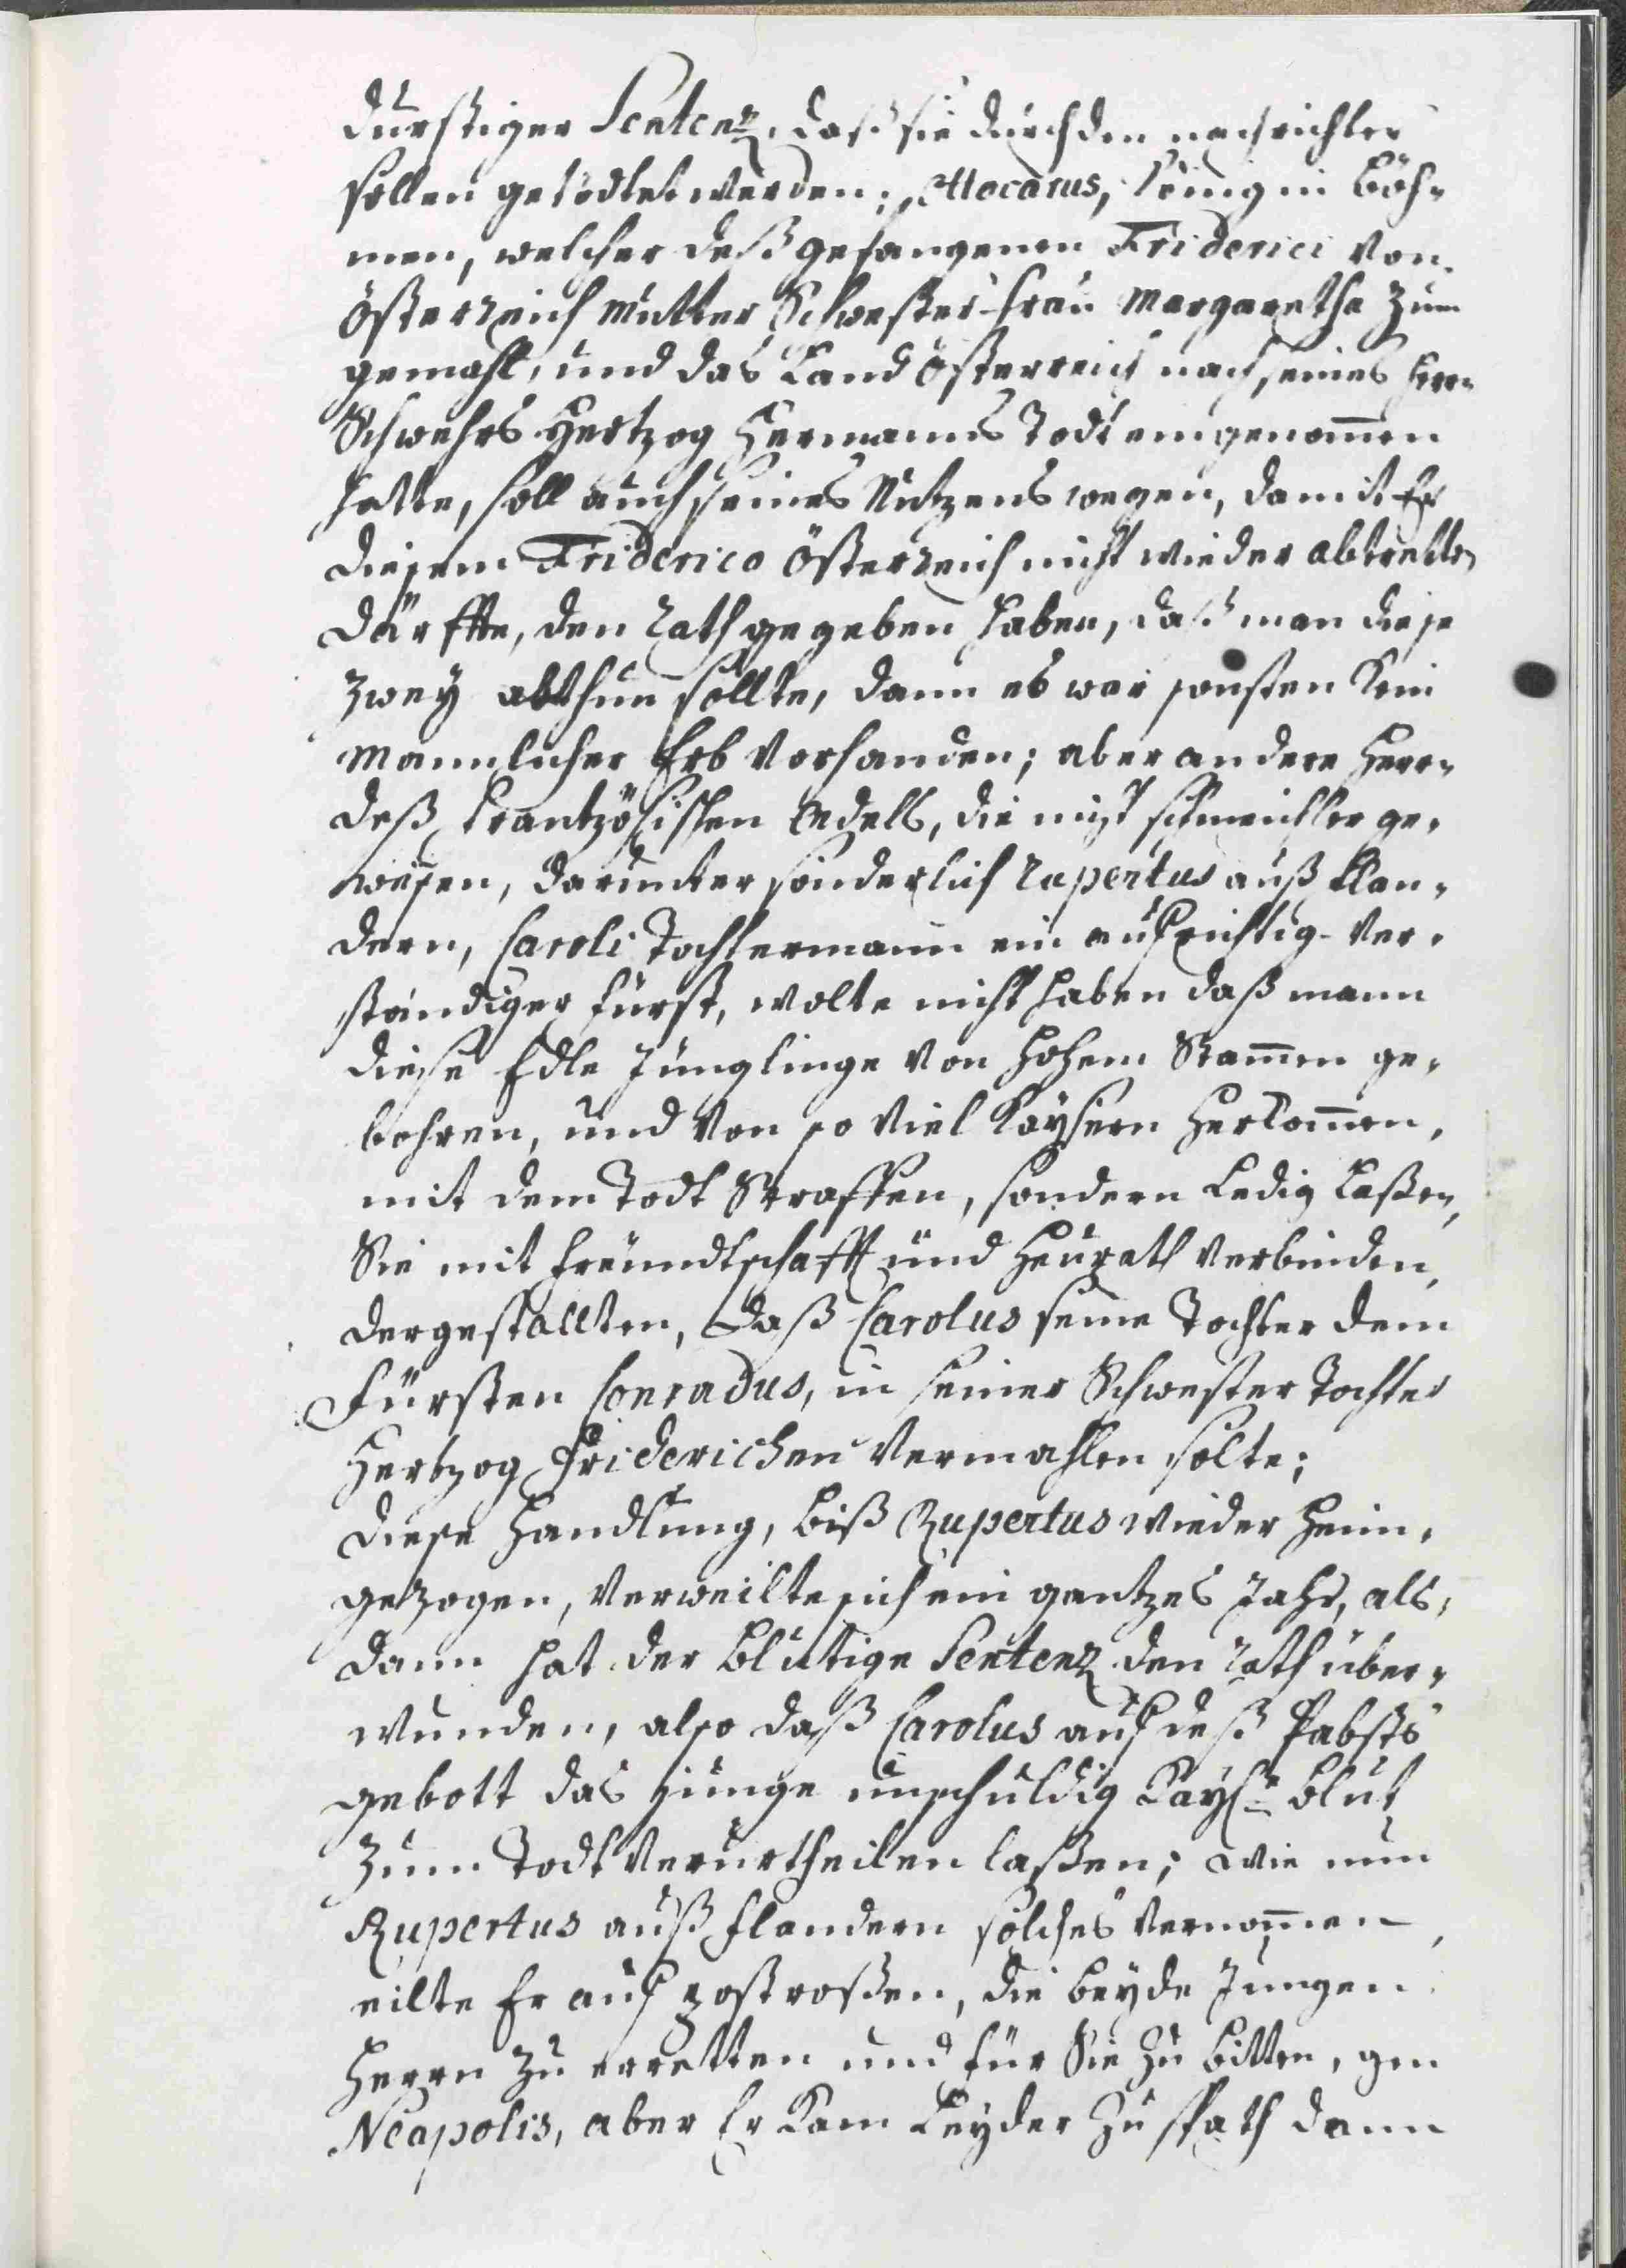 durstiger Sentenz, daß sie durch den nachrichter
sollen getödtet werden; Ottocarus, König in Böh-
men, welcher deß gefangenen Friderici von
Österreich Mutter Schwester Frau Margaretha zum
gemahl, und das Land Österreich nach seines Herrn
Schwehrs Hertzog Hermanns Todt eingenommen
hatte, soll auch seines Nutzens wegen, damit Er
diesem Friderico Österreich nicht wieder abtretten
därffte, den Rath gegeben haben, daß man diese
zwey abthun sollte, dann es war sonsten kein
Mannlicher Erb vorhanden; aber andere Herrn
deß frantzösischen Adells, die nicht schmeichler ge-
wesen, darunter sonderlich Rupertus auß Flan-
dern, Caroli Tochtermann ein aufrichtig-Ver-
ständiger fürst, wolte nicht haben daß mann
diese Edle Jünglinge von Hohem Stammen ge-
bohren, und von so viel Kaysern Herkommen,
mit dem Todt Straffen, sondern Ledig Laßen,
Sie mit freundtschafft und Heurath verbinden,
dergestallten, daß Carolus seine Tochter dem
Fürsten Conradus, und seiner Schwester Tochter
Hertzog Friderichen vermahlen solte;
diese Handlung, biß Rupertus wieder Heim-
gezogen, verweilte sich ein gantzes Jahr, als-
dann hat der blutige Sentenz den Rath über-
wunden, also daß Carolus auf deß Pabsts
gebott das junge unschuldig Kays: blut
zum Todt verurtheilen laßen; wie nun
Rupertus auß Flandern solches vernommen,
eilte Er auf postroßen, die beyde Jungen
Herrn zu erretten und für Sie zu bitten, gen
Neapolis, aber Er kam Leyder zu spath dann